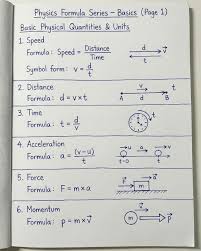 Physics Formula Series – Basics (Page 1)
Basic Physical Quantities & Units
1. Speed
Formula: Speed = Distance / Time
d
t
v⃗
Symbol form: v = d / t
2. Distance
Formula: d = v × t
v
A
d
B
t
3. Time
Formula: t = d / v
t
4. Acceleration
Formula: a = (v-u) / t
u
v
a⃗
t=0
t
5. Force
Formula: F = m × a
m
a⃗
6. Momentum
Formula: p = m × v⃗
m